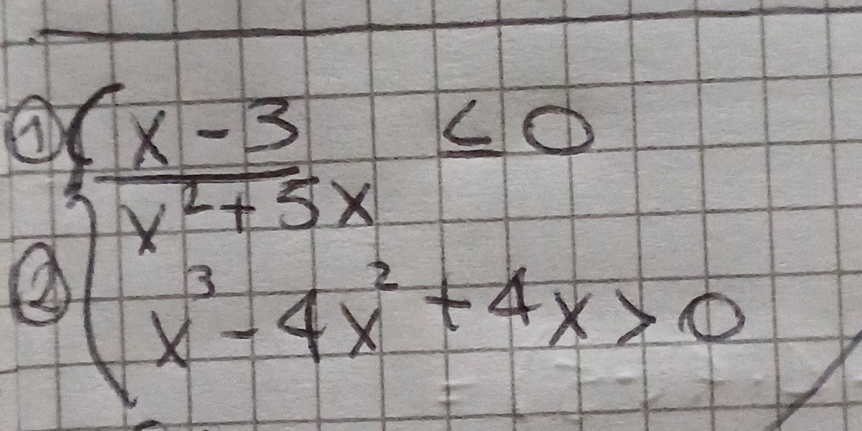 ① { x - 3 ≤ 0
x² + 5x
② x³ - 4x² + 4x > 0